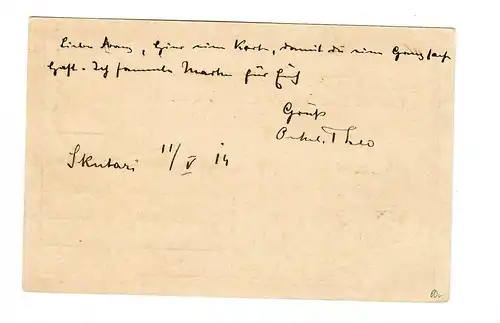 Liebe Franz, hier eine Karte, damit du eine Ganzsache
hast. Ich sammle Marken für Euch
Gruß
Onkel Theo
Skutari 11/V 14